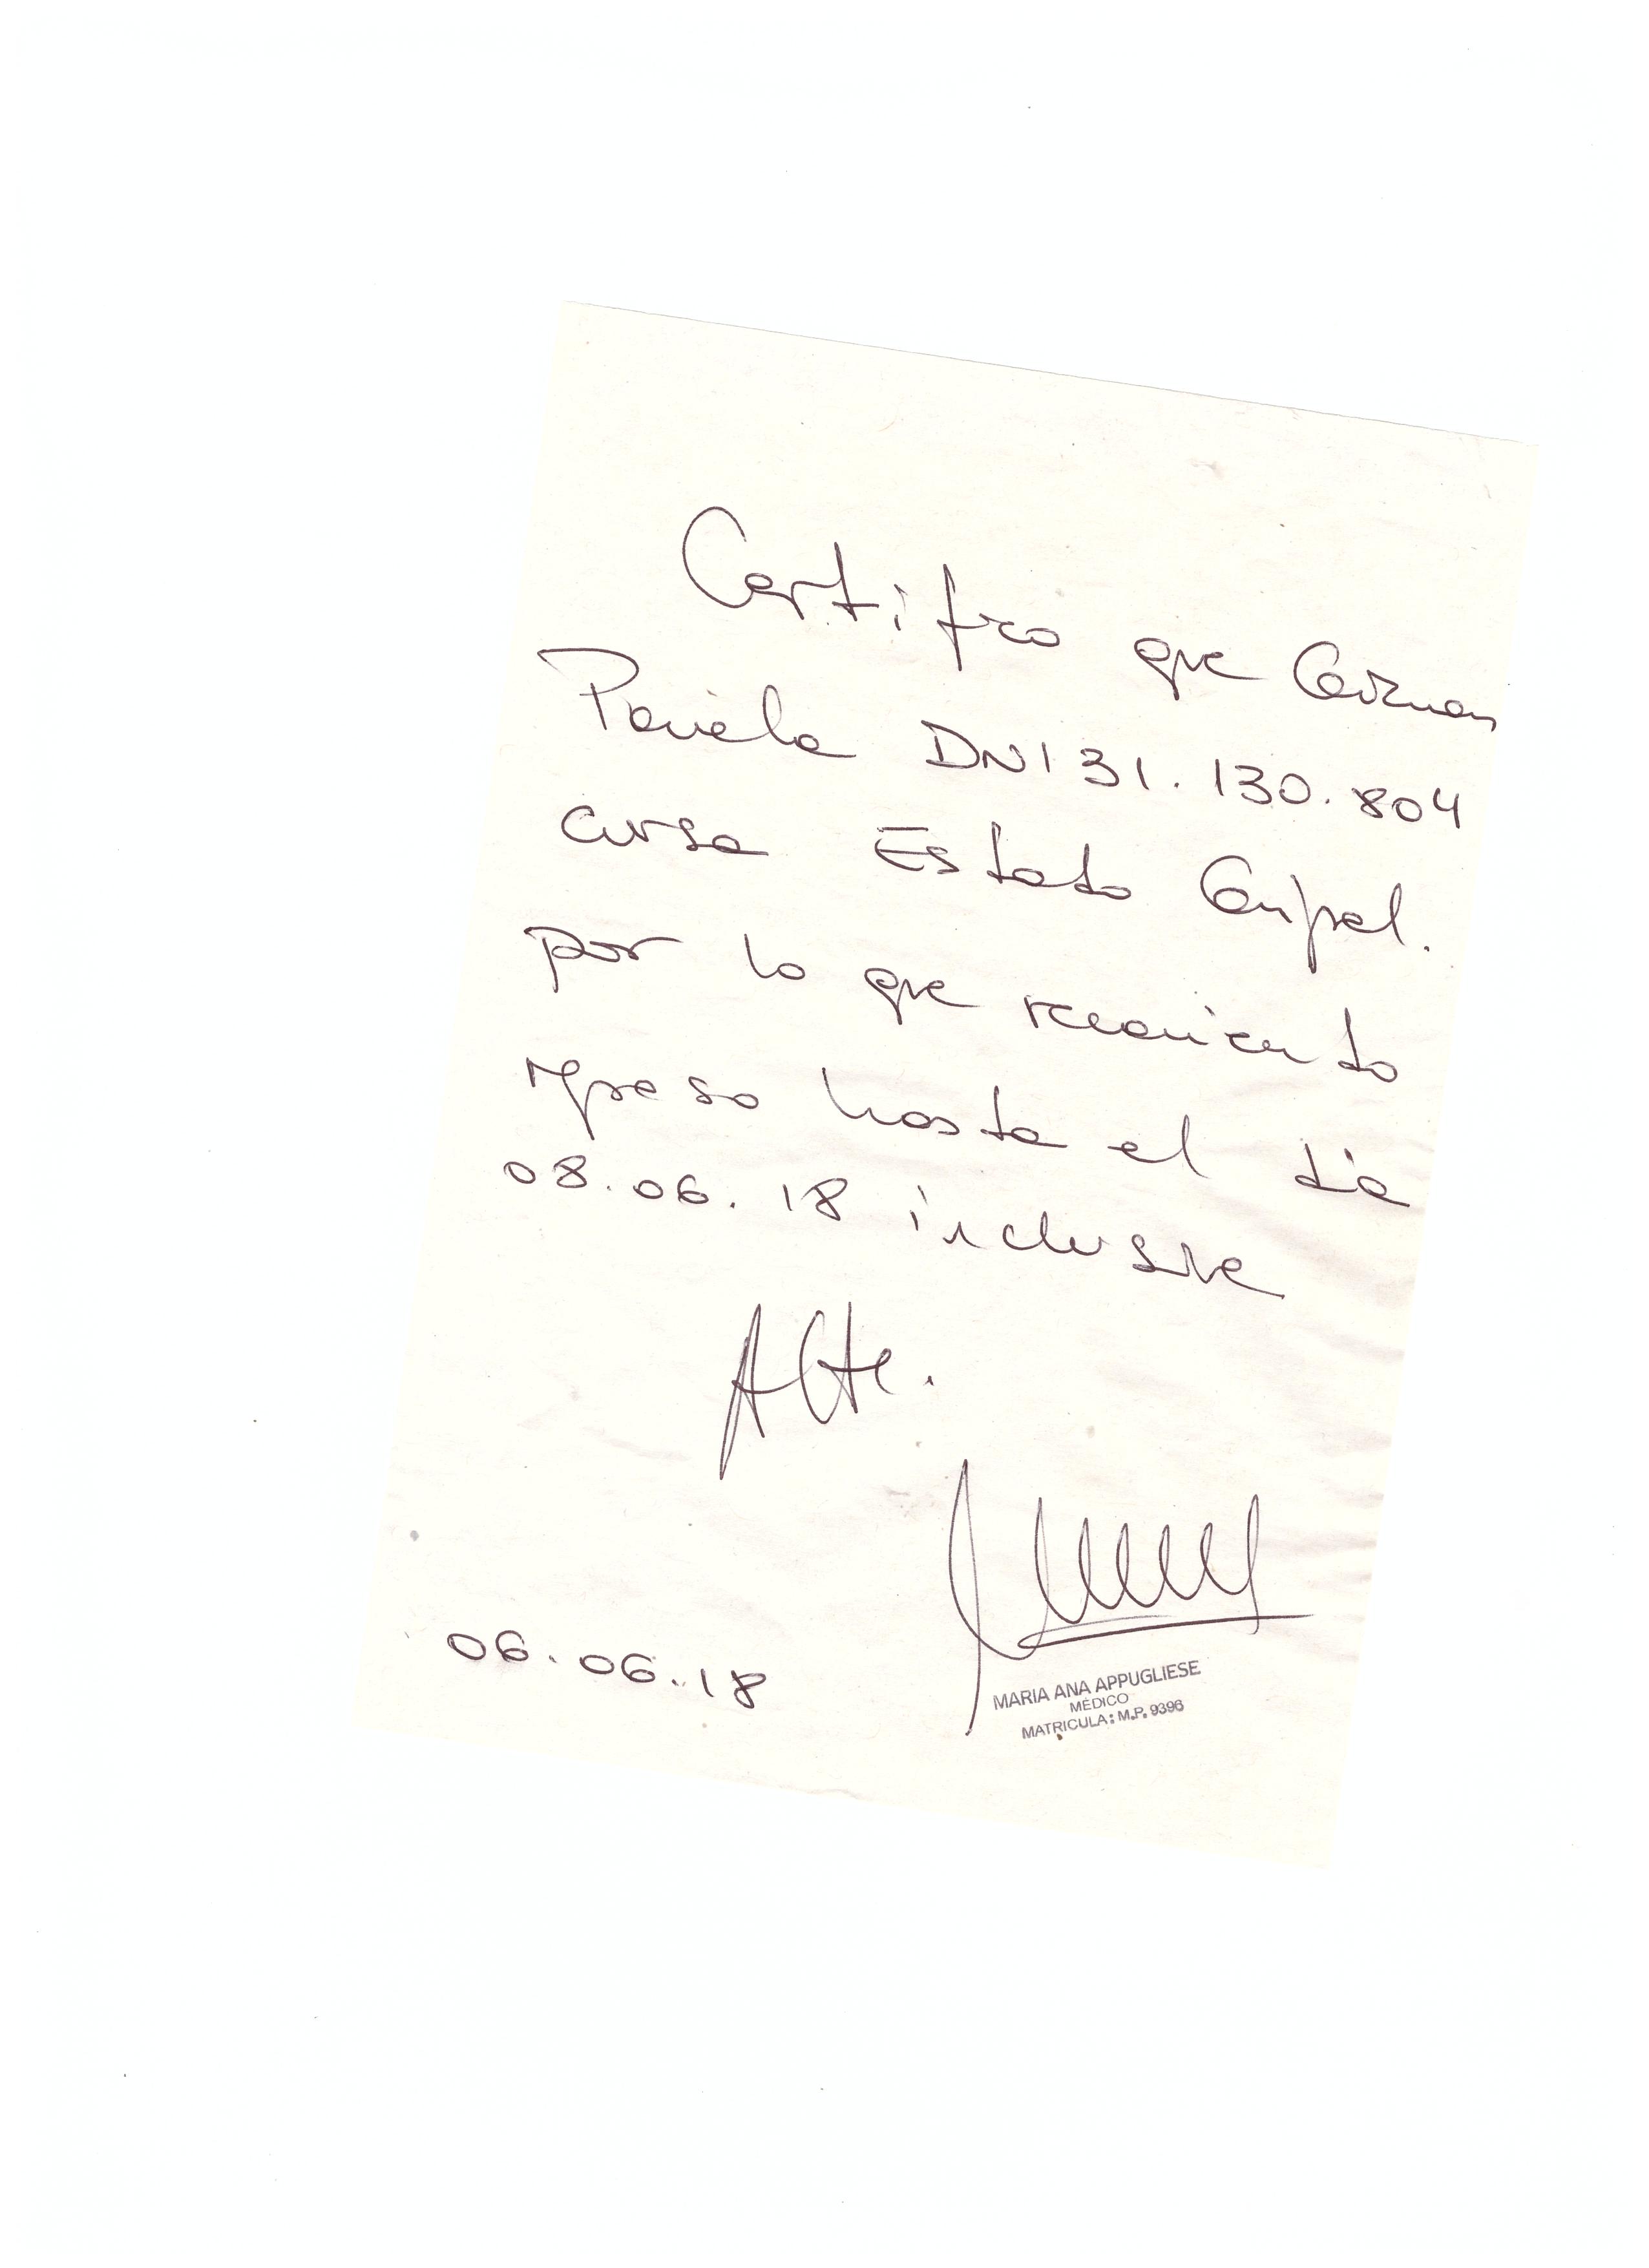 Certifico que
Pamela DNI 31.130.804
cursa Estado Gripal.
por lo que recomiendo
reposo hasta el día
08.06.18 inclusive
Atte.
06.06.18
MARIA ANA APPUGLIESE
MÉDICO
MATRICULA: M.P. 9396